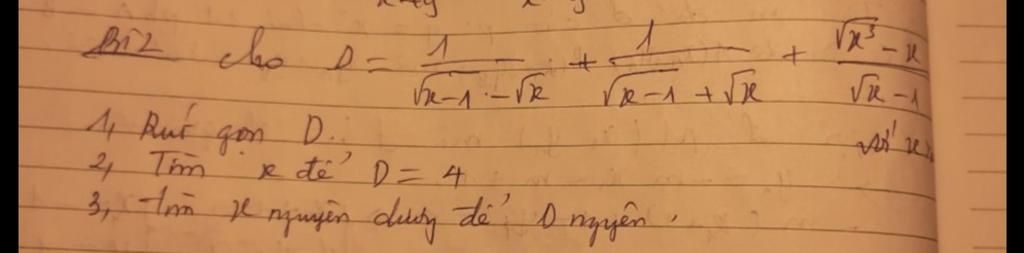 Bài 2 Cho D = 1/(√x-1 - √x) + 1/(√x-1 + √x) + (√x³ - x)/(√x - 1)
với x
1, Rút gọn D.
2, Tìm x để D = 4
3, Tìm x nguyên dương để D nguyên.